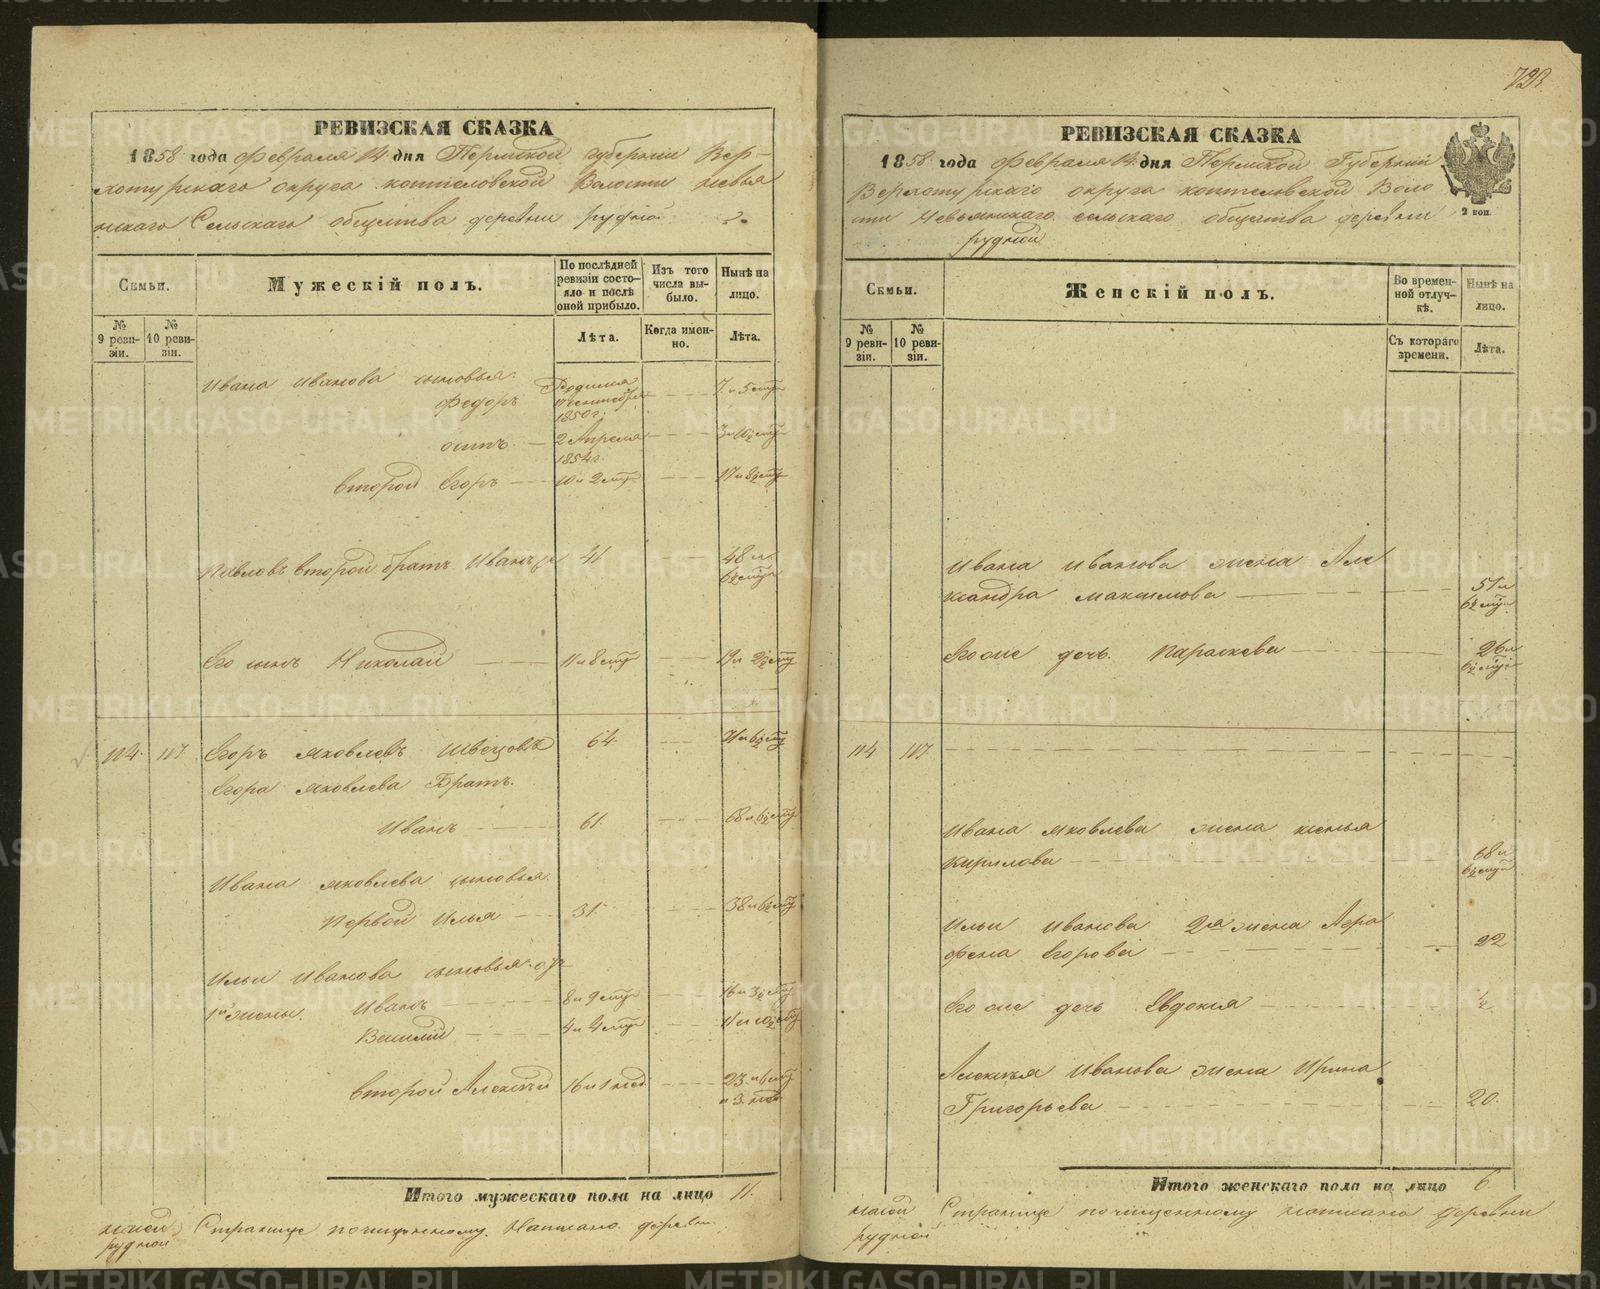 РЕВИЗСКАЯ СКАЗКА
1858 года февраля 14 дня Пермской губернии Вер-
хотурскаго округа коптеловской Волости невья
нскаго Сельскаго общества деревни рудной
Семьи.
Мужескій полъ.
По послѣдней ревизіи состо-яло и послѣ оной прибыло.
Изъ того числа вы-было.
Нынѣ на лицо.
№ 9 реви-зіи.
№ 10 реви-зіи.
Лѣта.
Когда имен-но.
Лѣта.
Ивана Иванова сыновья
Федоръ Родился 17 сентября 1850 г. 7 и 5
осипъ 2 Апреля 1854 г.
второй Егоръ
Павловъ второй братъ Иванъ 41 48
Его сынъ Николай
114 117 Егоръ яковлевъ Швецовъ 64
Егора яковлева Братъ
Иванъ 61
Ивана яковлева сыновья
Первой Илья 31
Ильи Иванова сыновья отъ
1й жены Иванъ
Василий
второй Алексѣй
Итого мужескаго пола на лицо 11.
на сей Странице по чищенному написано деревни
рудной
723
РЕВИЗСКАЯ СКАЗКА
1858 года февраля 14 дня Пермской Губернии
Верхотурскаго округа коптеловской Воло
сти Невьянскаго сельскаго общества деревни
рудной
2 коп.
Семьи.
Женскій полъ.
Во времен-ной отлуч-кѣ.
Нынѣ на лицо.
№ 9 реви-зіи.
№ 10 реви-зіи.
Съ котораго времени.
Лѣта.
Ивана Иванова жена Але
ксандра максимова
Его же дочь Параскева
114 117
Ивана Яковлева жена ксенья
кирилова
Ильи Иванова 2я жена Агра
фена Егорова 22
Его же дочь Евдокия ½
Алексѣя Иванова жена Ирина
Григорьева 20
Итого женскаго пола на лицо 6
на сей Странице по чищенному написано деревни
рудной
METRIKI.GASO-URAL.RU